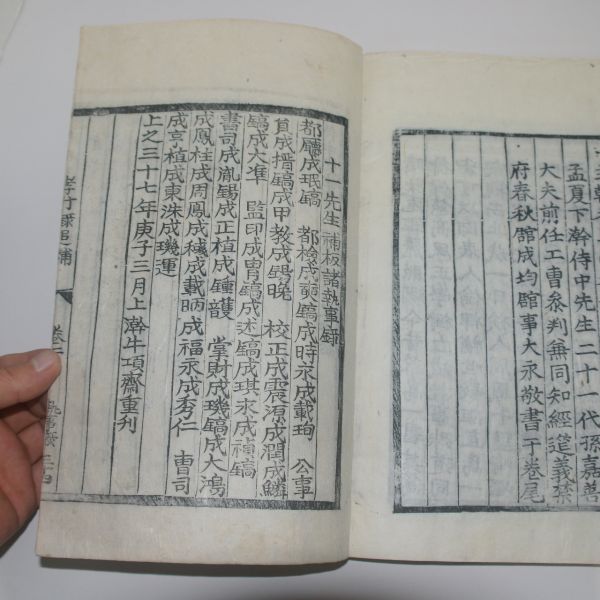 孟夏下澣侍中先生二十一代孫嘉善
大夫前任工曹參判兼同知經筵義禁
府春秋館成均館事大永敬書于卷尾
十一先生補板諸執事錄
都廳成珉鎬 都檢成 鎬成時永成載珣 公事
員成搢鎬成甲敎成錫晩 校正成震源成潤成鱗
鎬成大準 監印成胄鎬成述鎬成琪永成補鎬
書司成胤錫成正植成鍾頀 掌財成璣鎬成大鴻
成鳳柱成周鳳成穢成載昞成福永成秀仁 曹司
成亨植成東洙成璣運
上之三十七年庚子三月上澣牛項齋重刋
行錄追補 卷二